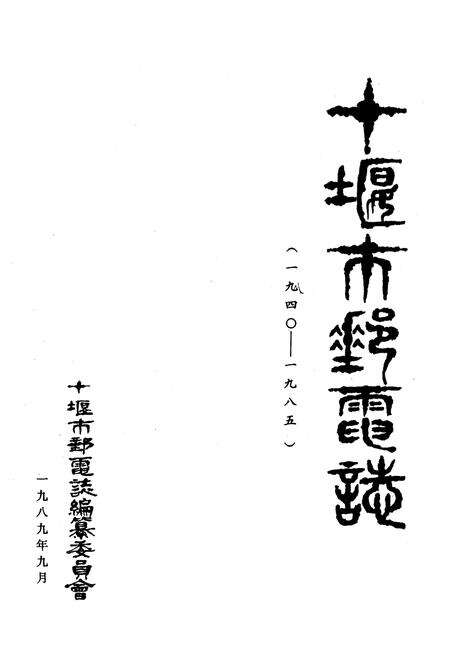 十堰市郵電誌
（一九四〇——一九八五）
十堰市郵電誌編纂委員會
一九八九年九月